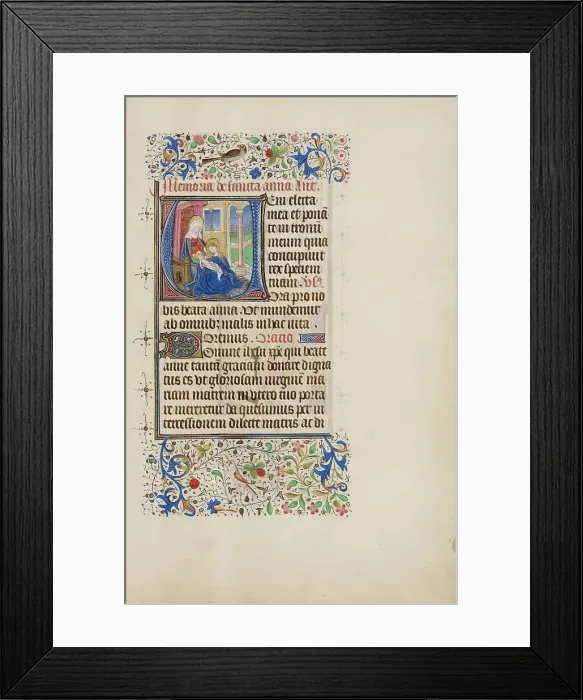 Memoria de sancta anna Ant.
Eni electa
mea et ponā
te in tronū
meum quia
concupiuit
rex speciem
tuam. Vs.
Ora pro no
bis beata anna. Vt mundemur
ab omnib; malis in hac uita
Oremus. Oratio
Omine ihū xpē qui beate
anne tantā graciam donare digna
tus es vt gloriosam uirginē ma
riam matrem in vtero suo porta
re mereretur da quesumus per in
tercessionem dilecte matris ac di